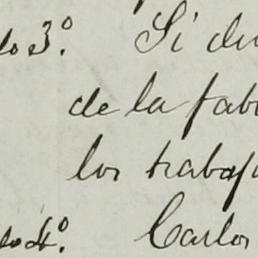 do 3º. Si du
de la fab
los trabaj
do 4º. Carlos